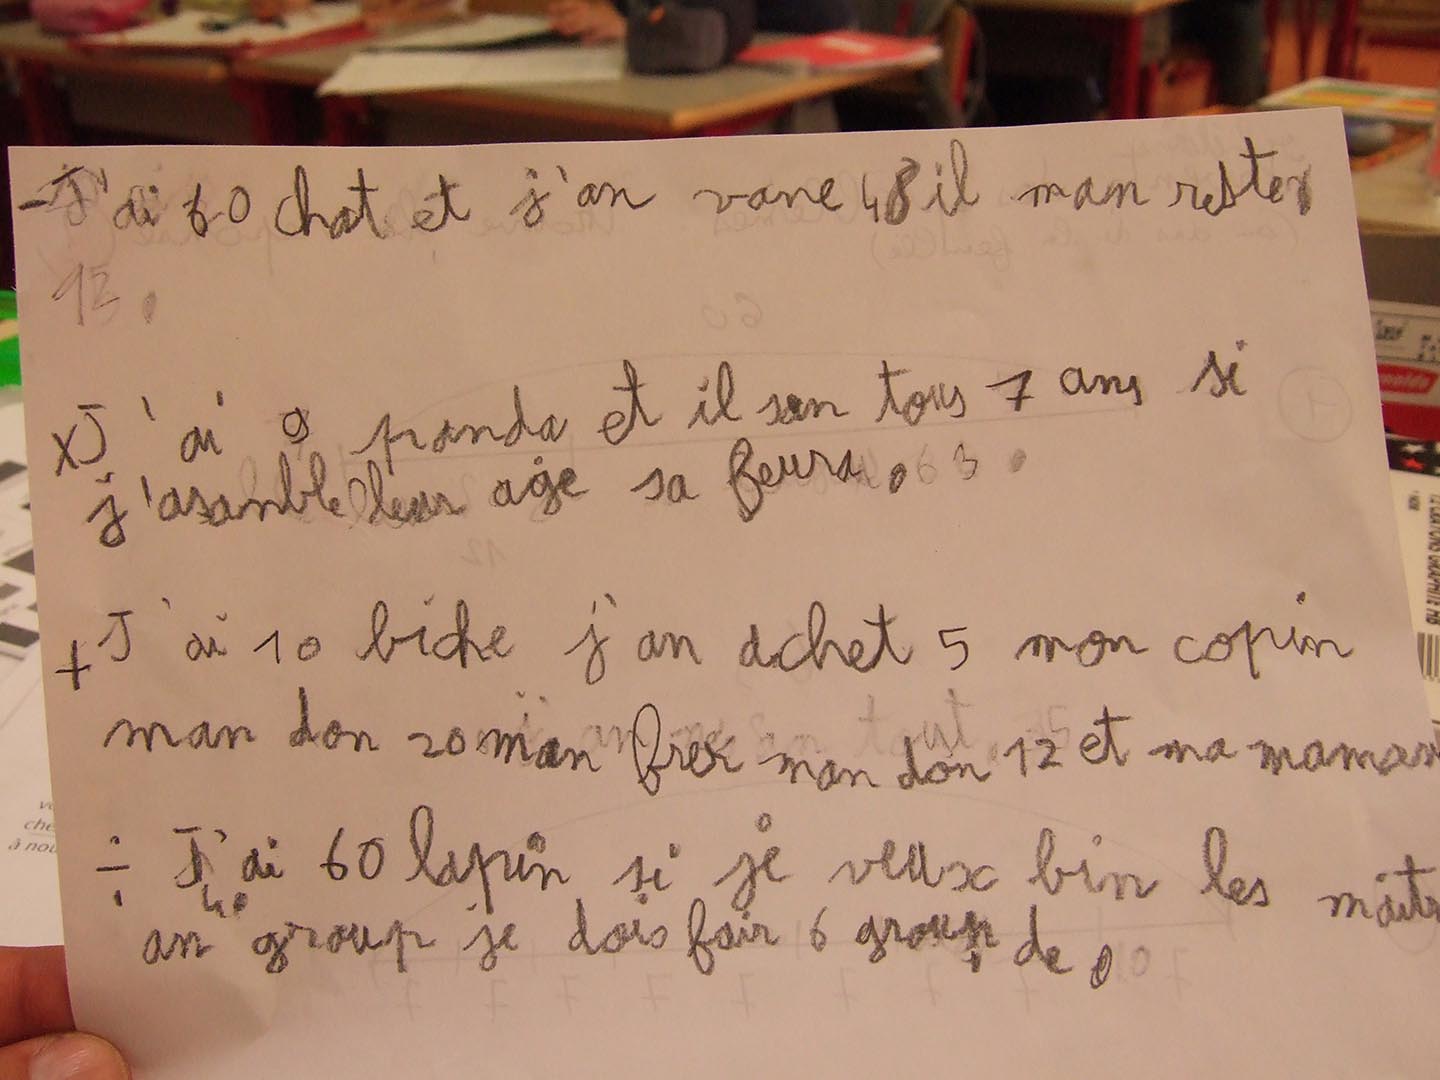 - J'ai 60 chat et j'an vane 48 il man reste
13.
x J'ai 9 panda et il son tous 7 ans si
j'asamble leur age sa feura. 63.
+ J'ai 10 biche j'an achet 5 mon copin
man don 20 man frer man don 12 et ma maman
÷ J'ai 60 lapin si je veux bin les maitr
an group je dois fair 6 group de